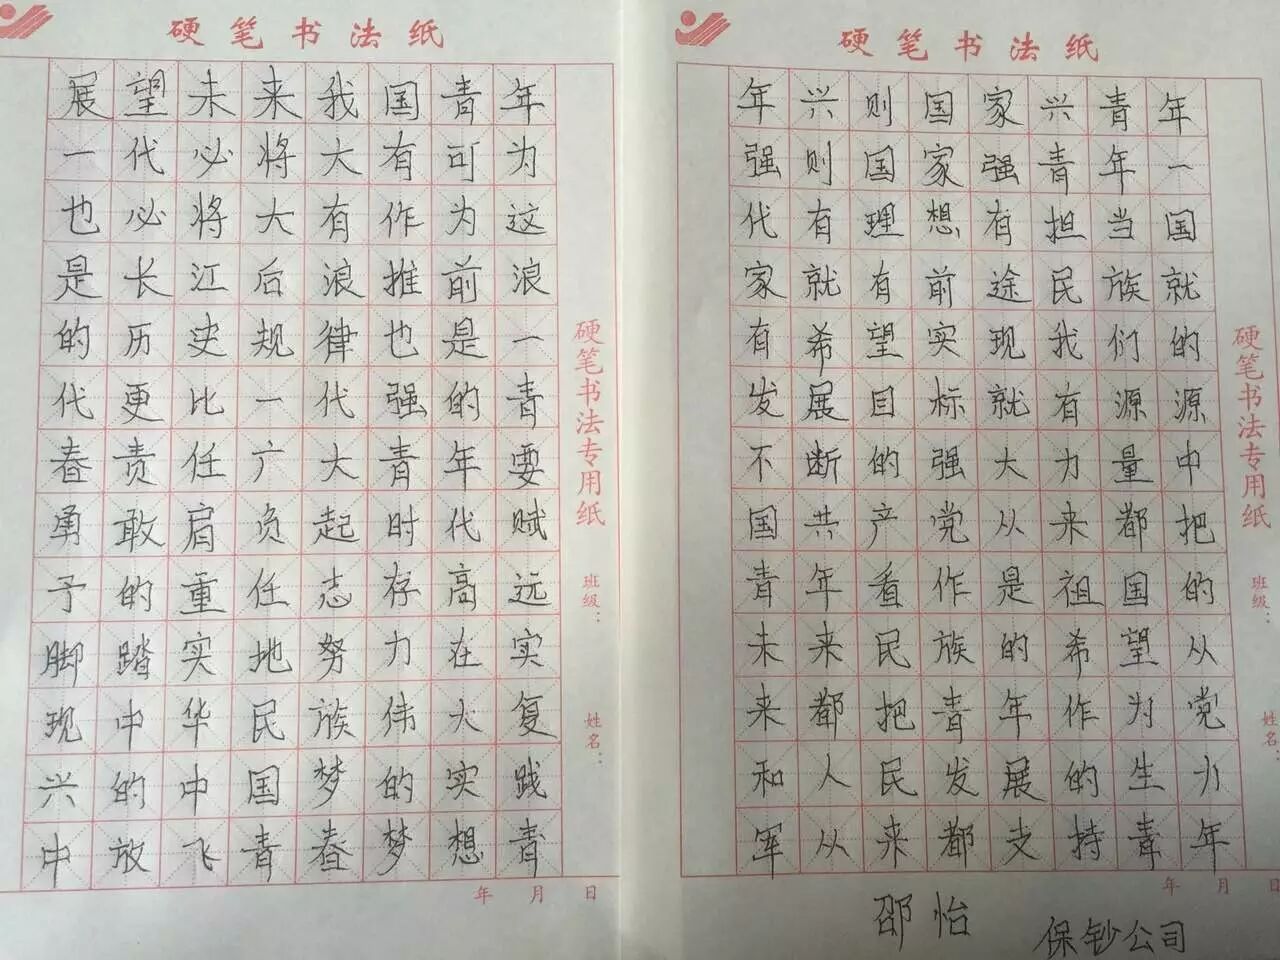 硬笔书法纸
展望未来我国青年
一代必将大有可为
也必将大有作为这
是长江后浪推前浪
的历史规律也是一
代更比一代强的青
春责任广大青年要
勇敢肩负起时代赋
予的重任志存高远
脚踏实地努力在实
现中华民族伟大复
兴的中国梦的实践
中放飞青春梦想青
硬笔书法专用纸
班级：
姓名：
年 月 日
硬笔书法纸
年兴则国家兴青年
强则国家强青年一
代有理想有担当国
家就有前途民族就
有希望实现我们的
发展目标就有源源
不断的强大力量中
国共产党从来都把
青年看作是祖国的
未来民族的希望从
来都把青年作为党
和人民发展的生力
军从来都支持青年
硬笔书法专用纸
班级：
姓名：
年 月 日
邵怡
保钞公司